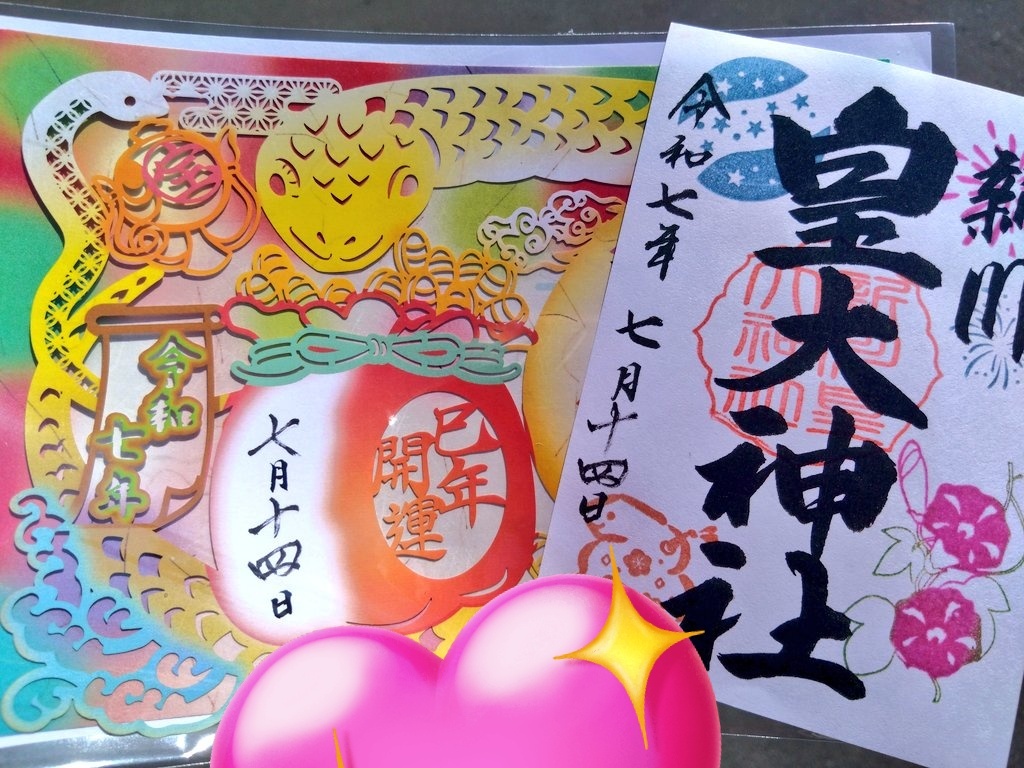 令和
七年
七月十四日
巳年
開運
新川
皇大神社
令和七年 七月十四日